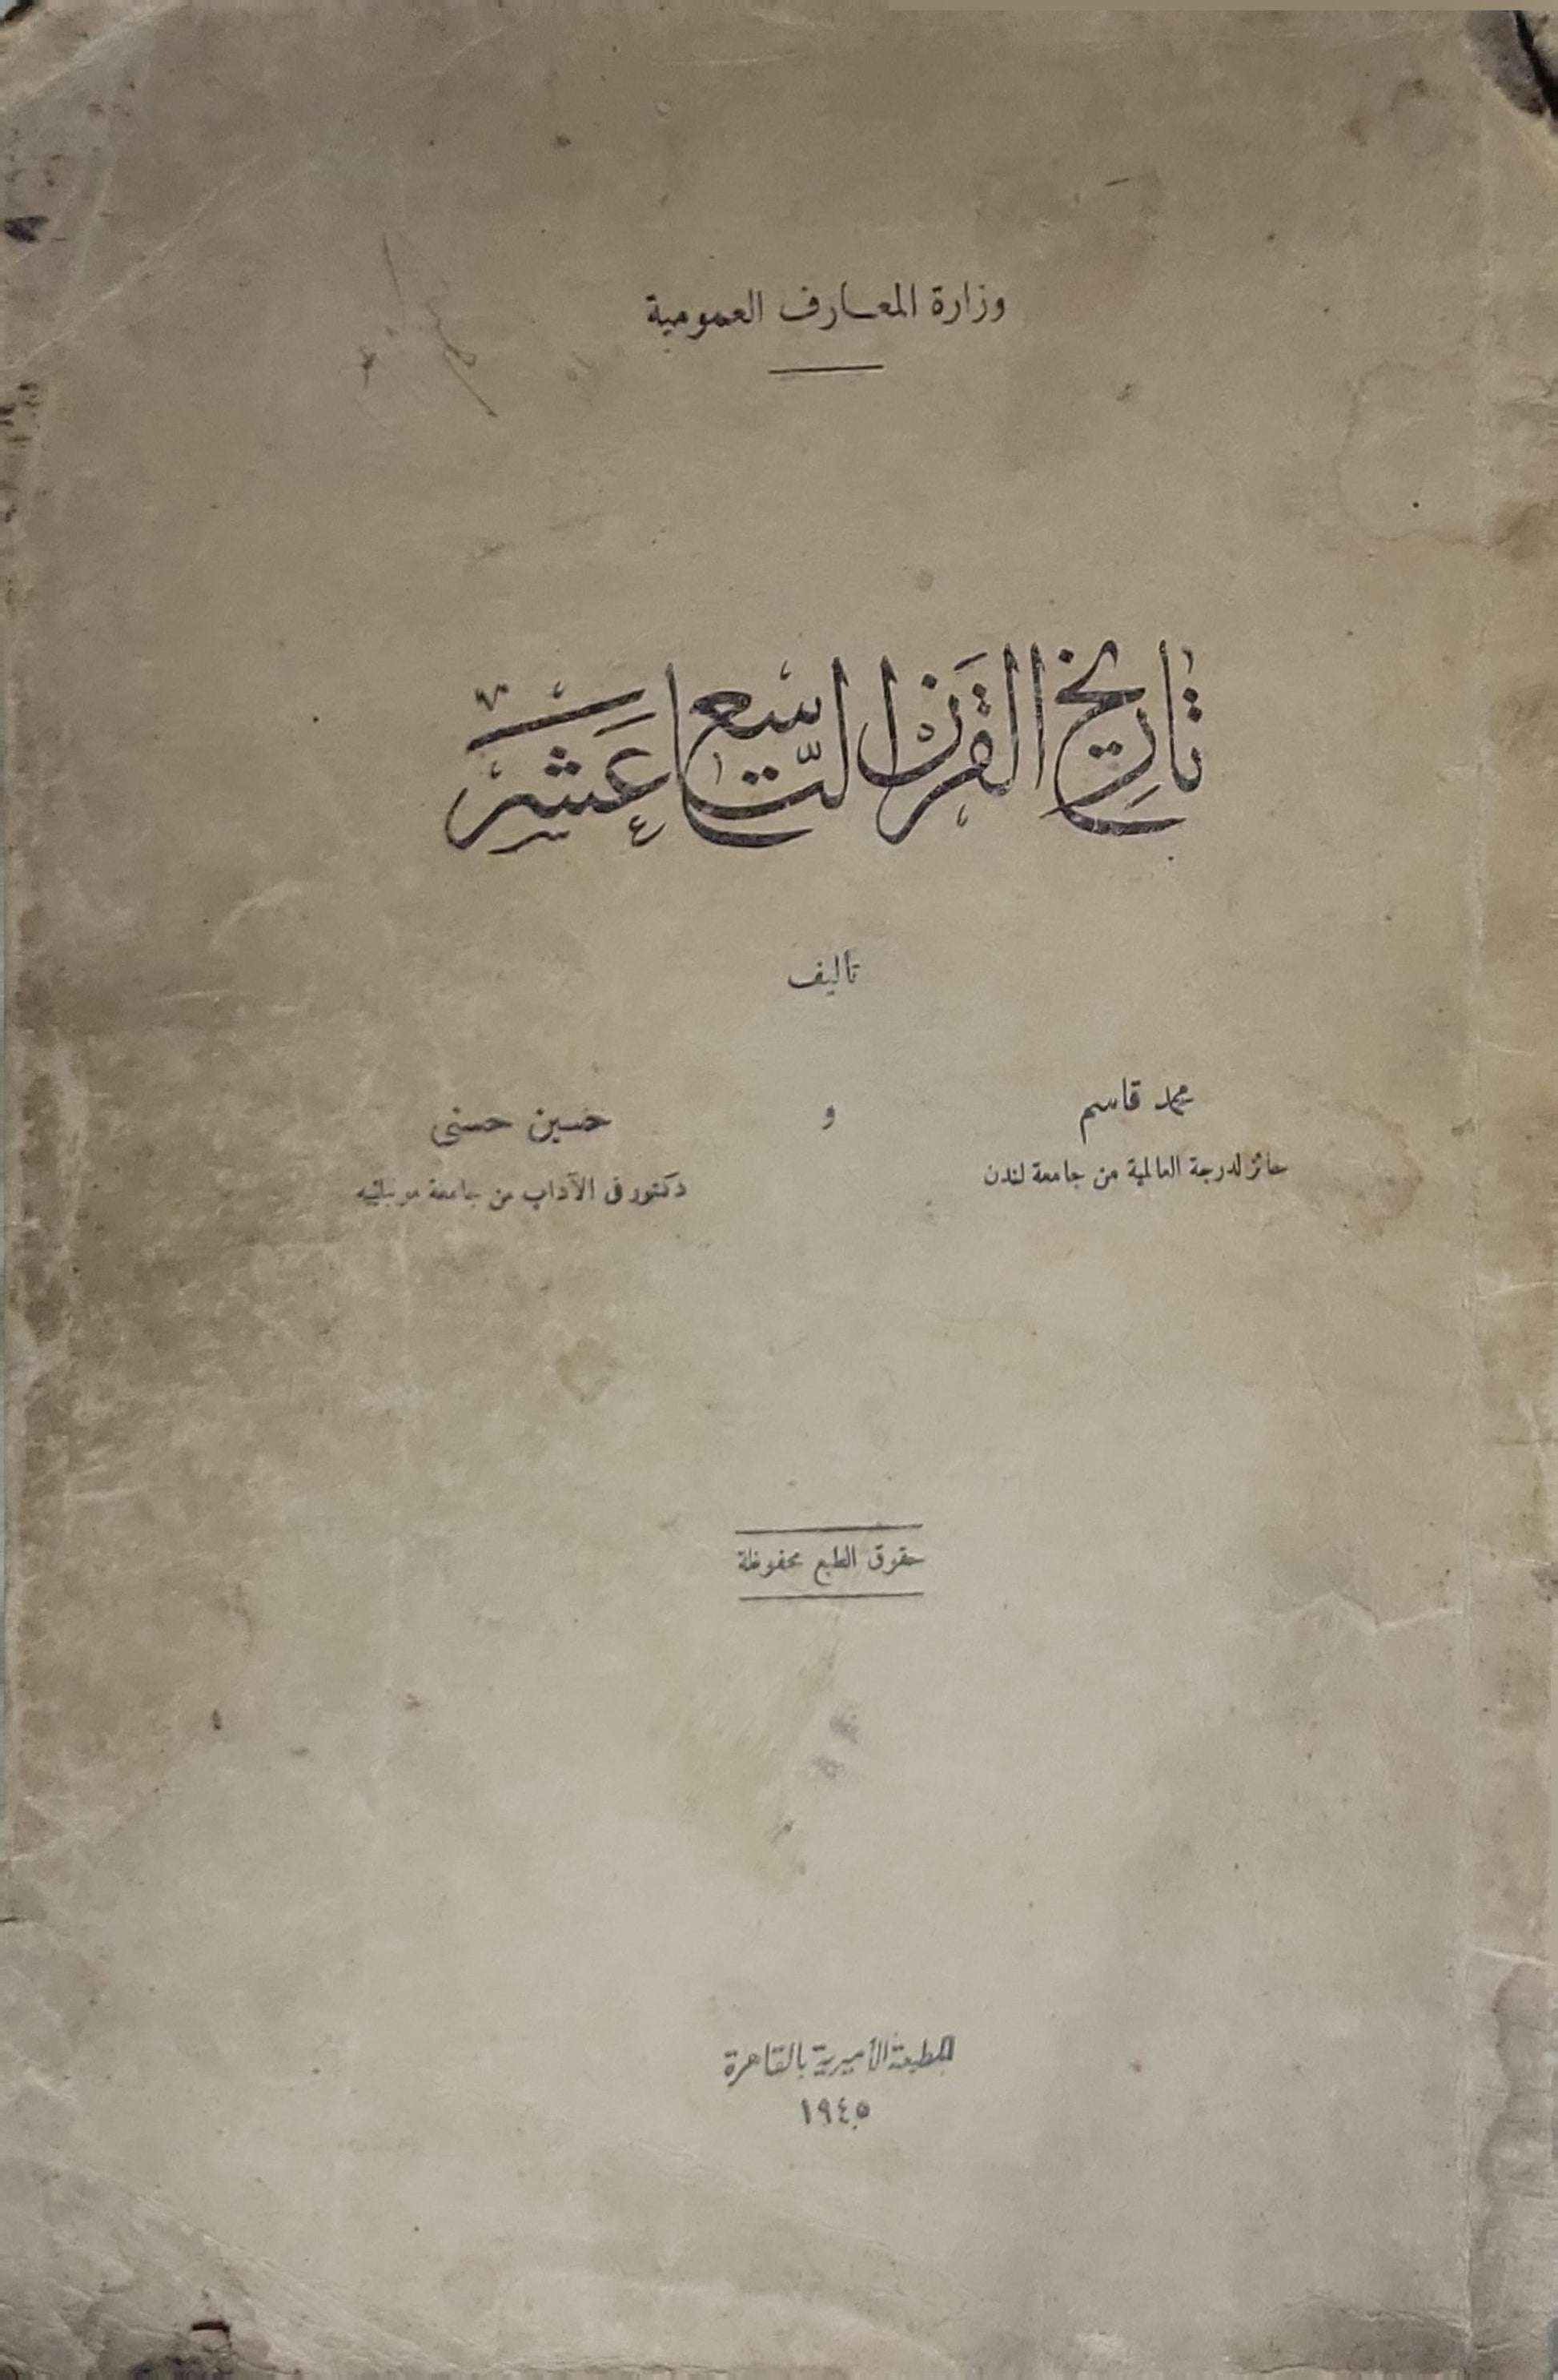 وزارة المعارف العمومية
تاريخ القرن التاسع عشر
تأليف
محمد قاسم و حسين حسنى
حائز لدرجة العالمية من جامعة لندن دكتور فى الآداب من جامعة مونبلييه
حقوق الطبع محفوظة
المطبعة الأميرية بالقاهرة
١٩٤٥